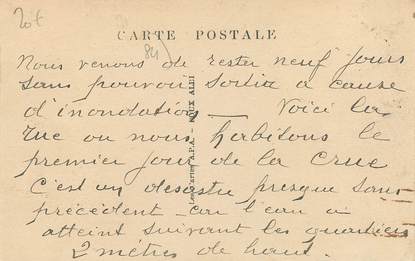 20f
CARTE POSTALE
84)
Nous venons de rester neuf jours
sans pouvoir sortir a cause
d'inondation Voici la
rue ou nous habitons le
premier jour de la crue
C'est un desastre presque sans
précédent car l'eau a
atteint suivant les quartiers
2 mètres de haut.
A.P.A. - ROUX ALEI